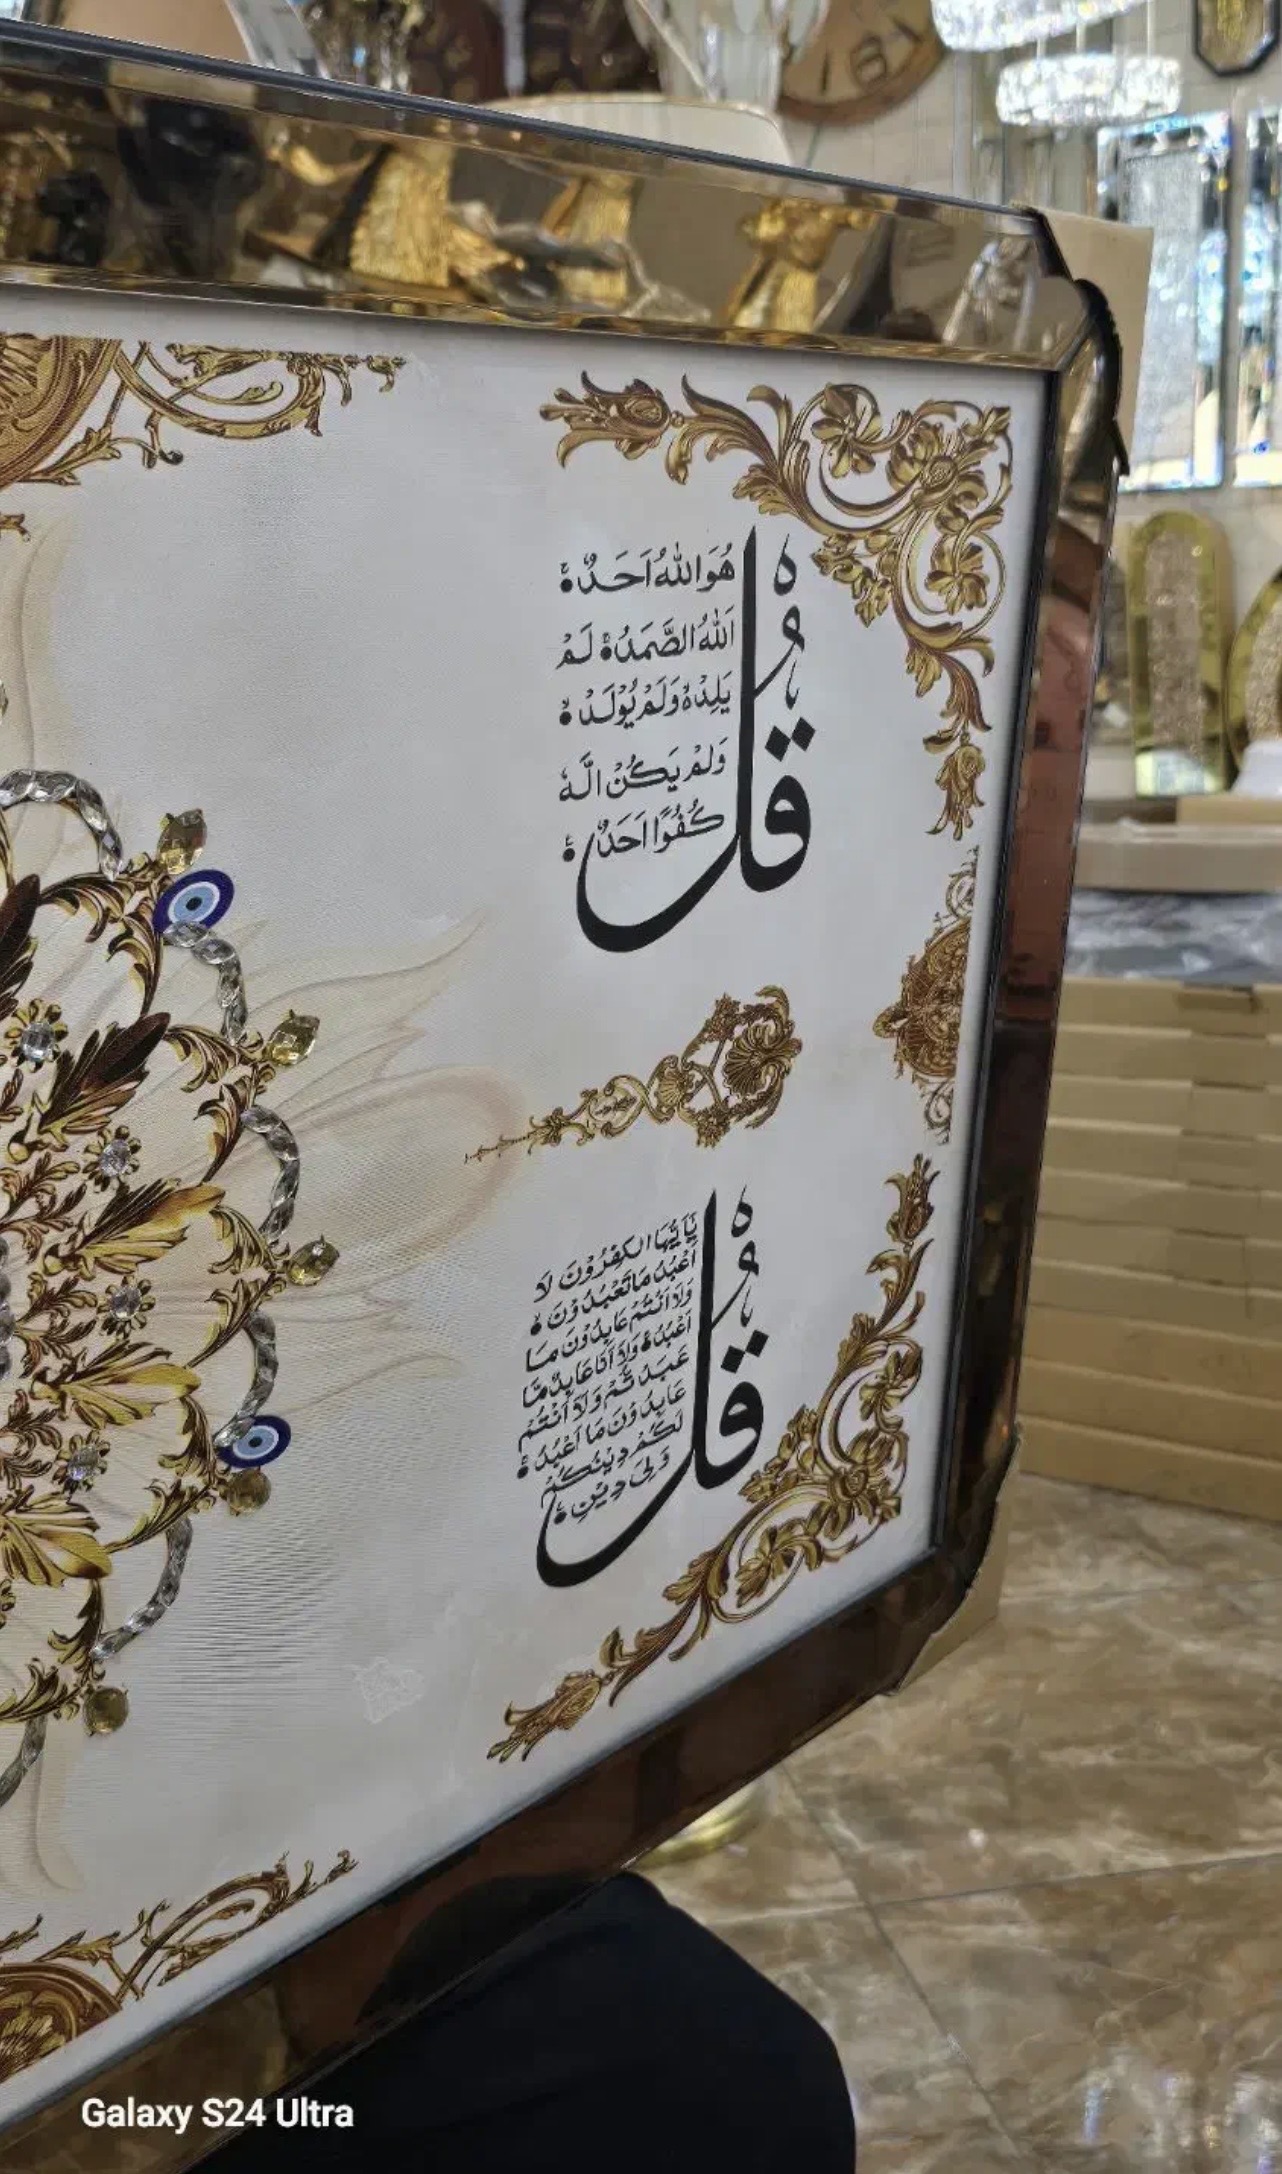 قُلْ
هُوَ اللّٰهُ اَحَدٌ
اَللّٰهُ الصَّمَدُ لَمْ
يَلِدْ وَلَمْ يُوْلَدْ
وَلَمْ يَكُنْ لَّهٗ
كُفُوًا اَحَدٌ
قُلْ
يٰٓاَيُّهَا الْكٰفِرُوْنَ لَا
اَعْبُدُ مَا تَعْبُدُوْنَ
وَلَا اَنْتُمْ عَابِدُوْنَ مَا
اَعْبُدُ وَلَا اَنَا عَابِدٌ مَّا
عَبَدْتُّمْ وَلَا اَنْتُمْ
عَابِدُوْنَ مَا اَعْبُدُ
لَكُمْ دِيْنُكُمْ
وَلِيَ دِيْنِ
Galaxy S24 Ultra